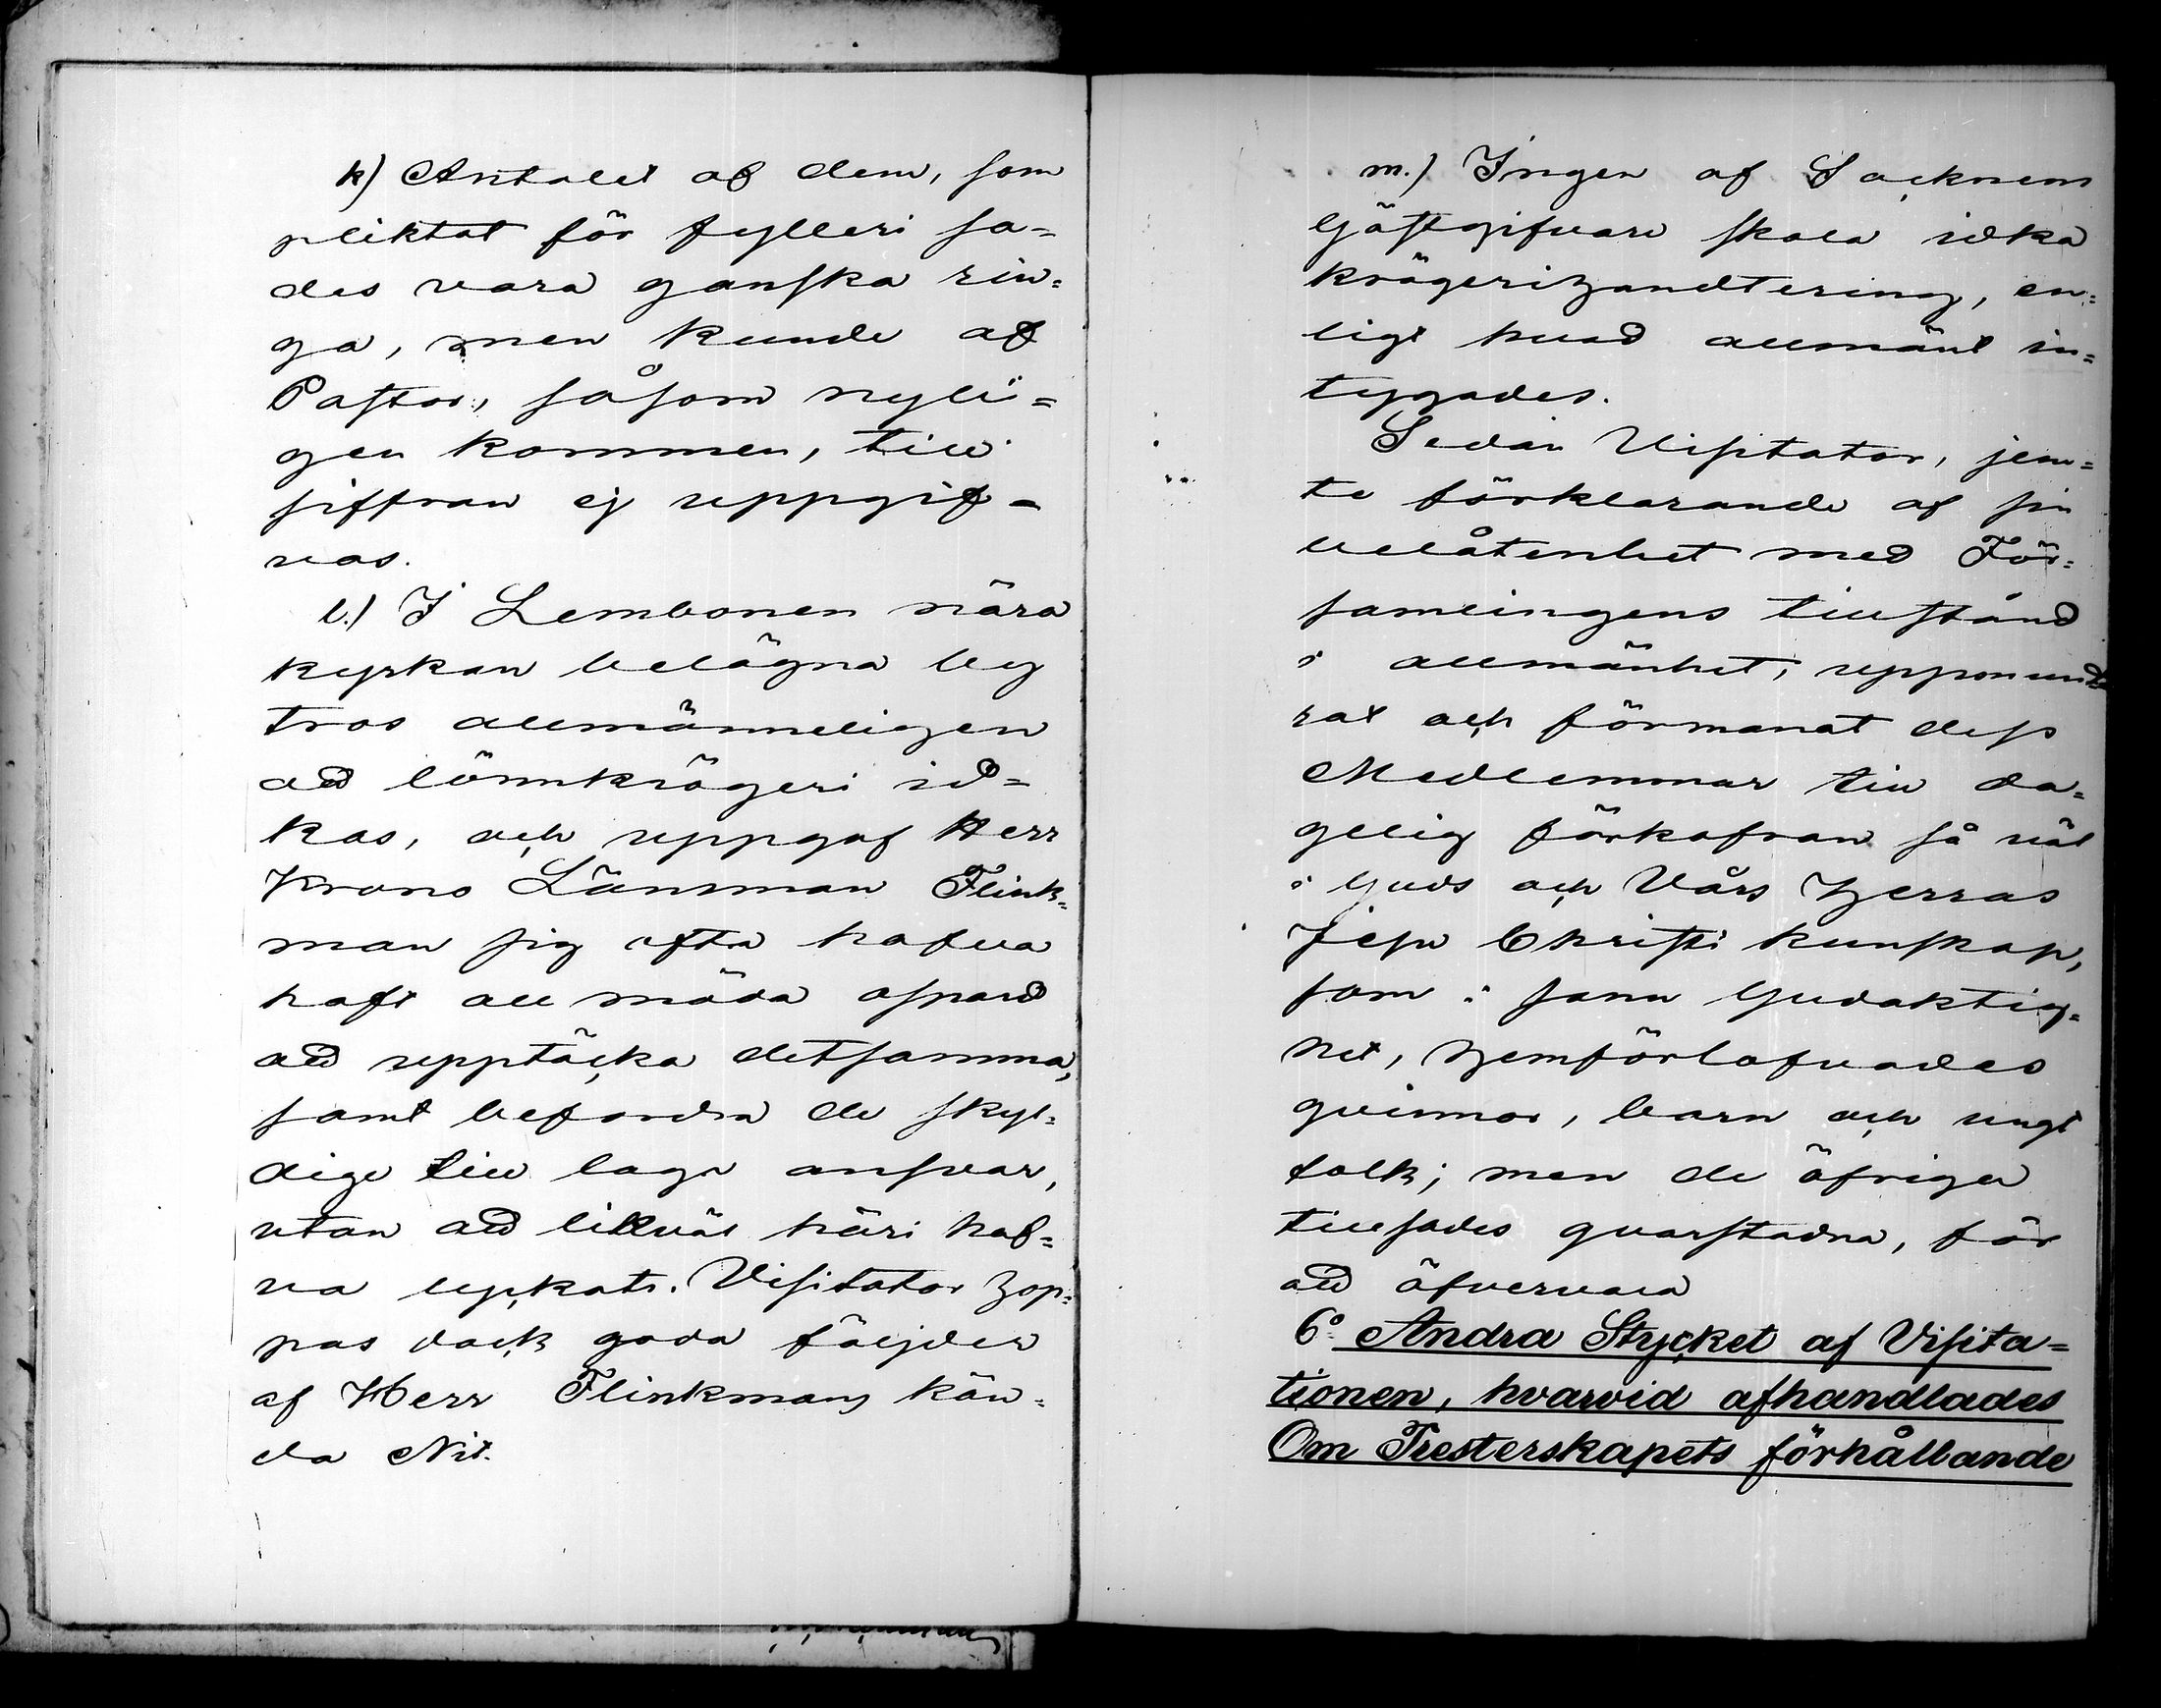 k) Antalet af dem, som
pliktat för fylleri sa=
des vara ganska rin=
ga, men kunde af
Pastor, såsom nyli=
gen kommen, till
siffran ej uppgif=
vas.
l.) I Lembonen nära
kyrkan belägna by
tros allmänneligen
att lönnkrögeri id=
kas, och uppgaf Herr
Krono Länsman Flink=
man sig ofta hafva
haft all möda ospard
att upptäcka detsamma,
samt befordra de skyl=
dige till laga ansvar,
utan att likväl häri haf=
va lyckats. Visitator hop=
pas dock goda följder
af Herr Flinkmans kän=
da Nit.
m.) Ingen af Socknens
Gästgifvare skola idka
krögerihandtering, en=
ligt hvad allmänt in=
tygades.
Sedan Visitator, jem=
te förklarande af sin
belåtenhet med För=
samlingens tillstånd
i allmänhet, uppmunt=
rat och förmanat dess
Medlemmar till da=
gelig förkofran så väl
i Guds och Vårs Herras
Jesu Christi kunskap,
som i sann Gudaktig=
het, hemförlofvades
qvinnor, barn och ungt
folk; men de öfriga
tillsades qvarstadna, för
att öfvervara
6° Andra Stycket af Visita=
tionen, hvarvid afhandlades
Om Presterskapets förhållande